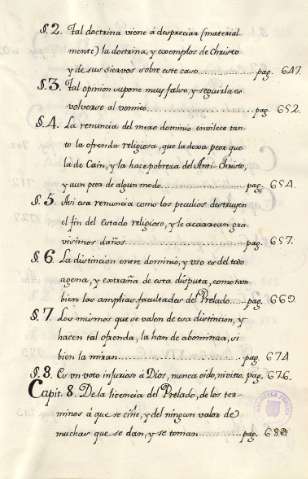 §. 2. Tal doctrina viene á despreciar (material
mente) la doctrina, y exemplos de Christo
y de sus siervos sobre este caso............pag. 647.
§. 3. Tal opinion supone muy falso, y seguirla es
volverse al vomito...................pag. 652.
§. 4. La renuncia del mero dominio envilece tan
to la ofrenda religiosa, que la dexa peor que
la de Cain, y la hace pobreza del Anti-Christo,
y aun peor de algun modo.............pag. 654.
§. 5. Asi esa renuncia como los peculios destruyen
el fin del Estado religioso, y le acarrean gra
visimos daños.....................pag. 657.
§. 6. La distincion entre dominio, y uso es del todo
agena, y extraña de esta disputa, como tam
bien las amplias facultades del Prelado....pag. 669.
§. 7. Los mismos que se valen de esa distincion, y
hacen tal ofrenda, la han de abominar, si
bien la miran.....................pag. 674.
§. 8. Es un voto injurioso á Dios, nunca oido, ni visto. pag. 676.
Capit. 8. De la licencia del Prelado, de los ter
minos á que se ciñe, y del ningun valor de
muchas que se dan, y se toman..........pag. 682